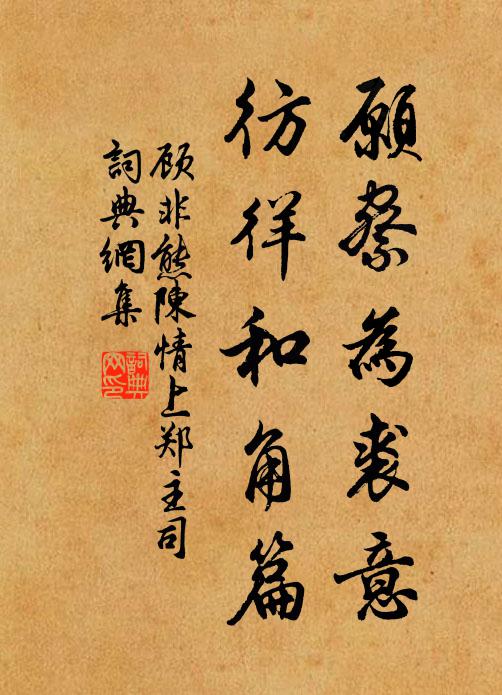 願察為裘意
彷徉和角篇
顾非熊陳情上郑主司
詞典網集
詞典
网印